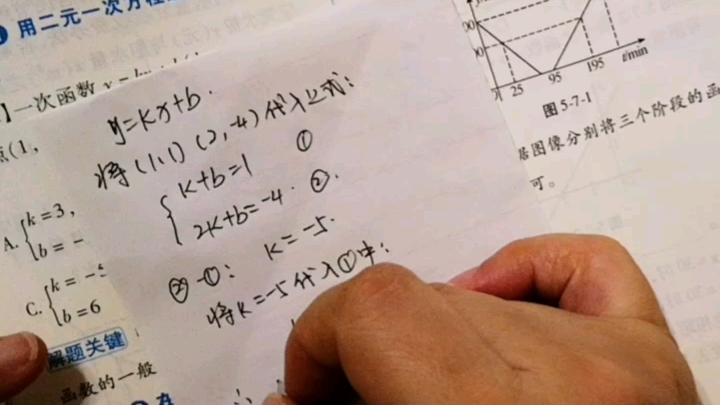 用二元一次方程
】一次函数 y=
点(1,
A.{k=3,
b=-
C.{k=-5
b=6
解题关键
函数的一般
y=kx+b.
将(1,1)(2,-4)代入上式:
{k+b=1 ①
2k+b=-4. ②.
②-①: k=-5.
将k=-5代入①中:
∴
25 95 195 t/min
图5-7-1
居图像分别将三个阶段的函
可。